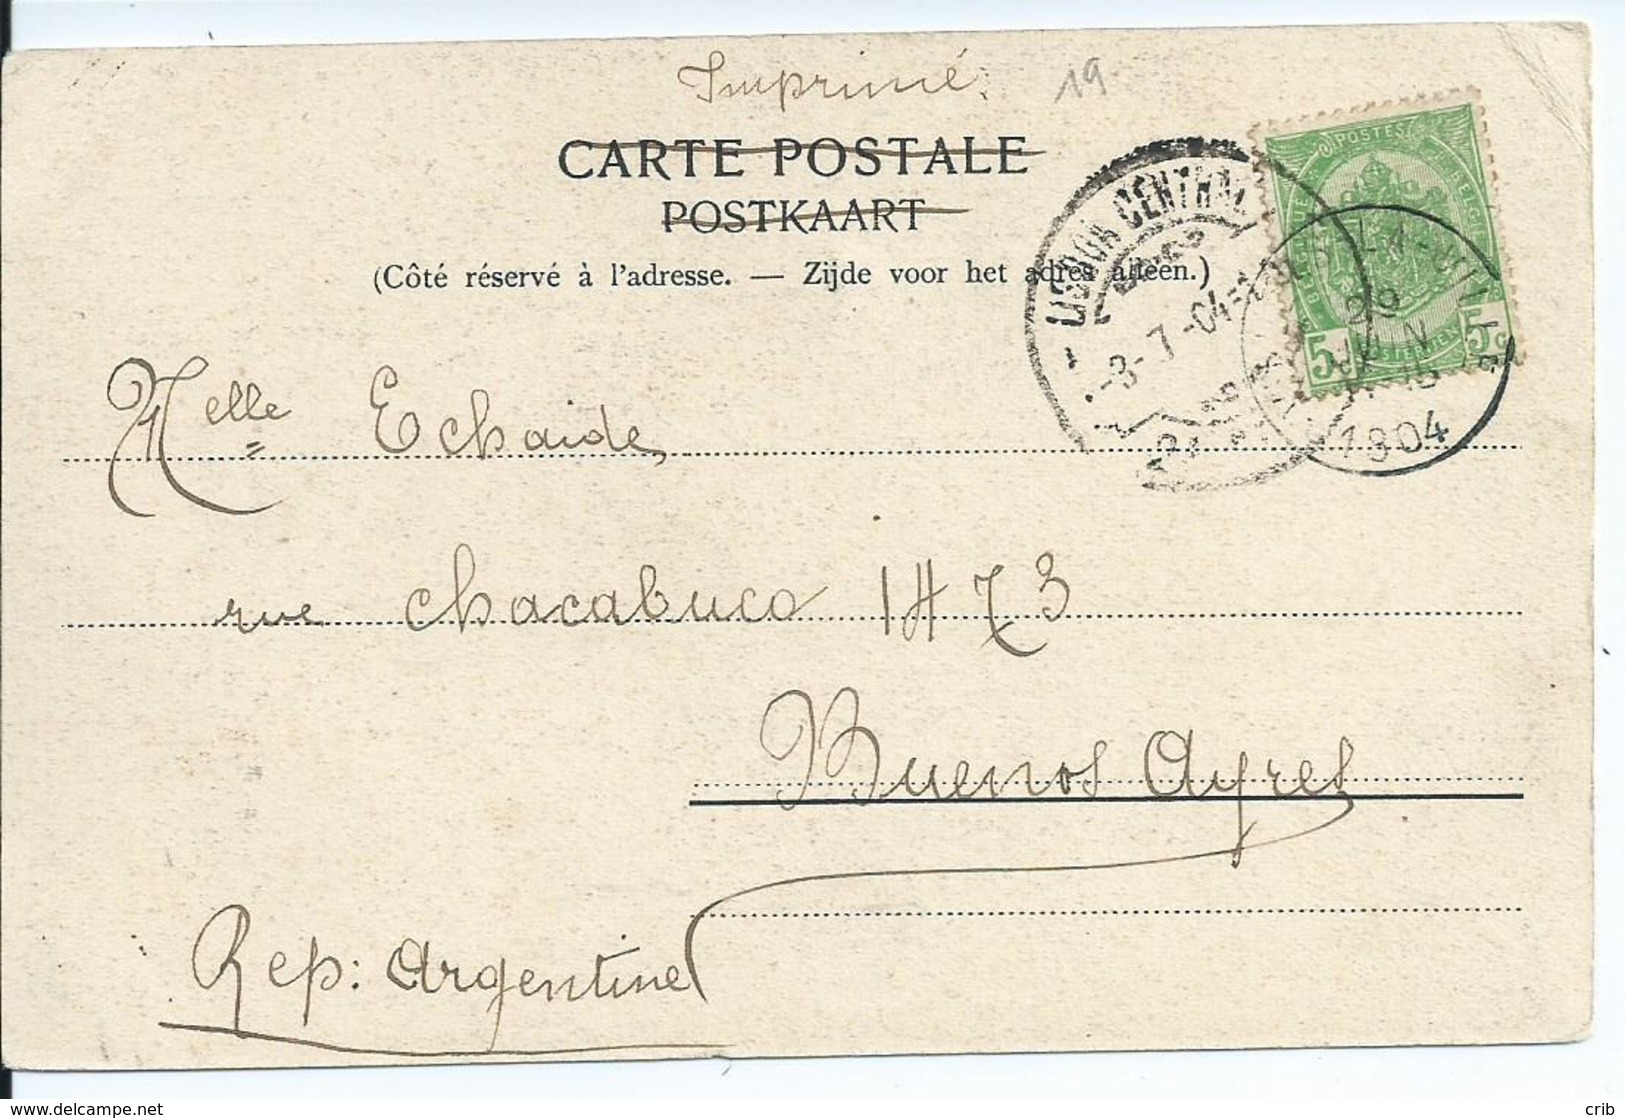 Imprimé.
19
CARTE POSTALE
POSTKAART
(Côté réservé à l'adresse. — Zijde voor het adres alleen.)
LISBOA CENTRAL
3-7-04
POSTES
BELGIQUE
BELGIE
5c 5c
29
JUIN
1904
Melle Echaide
rue Chacabuco 1473
Buenos Ayres
Rep: Argentine
delcampe.net
crib